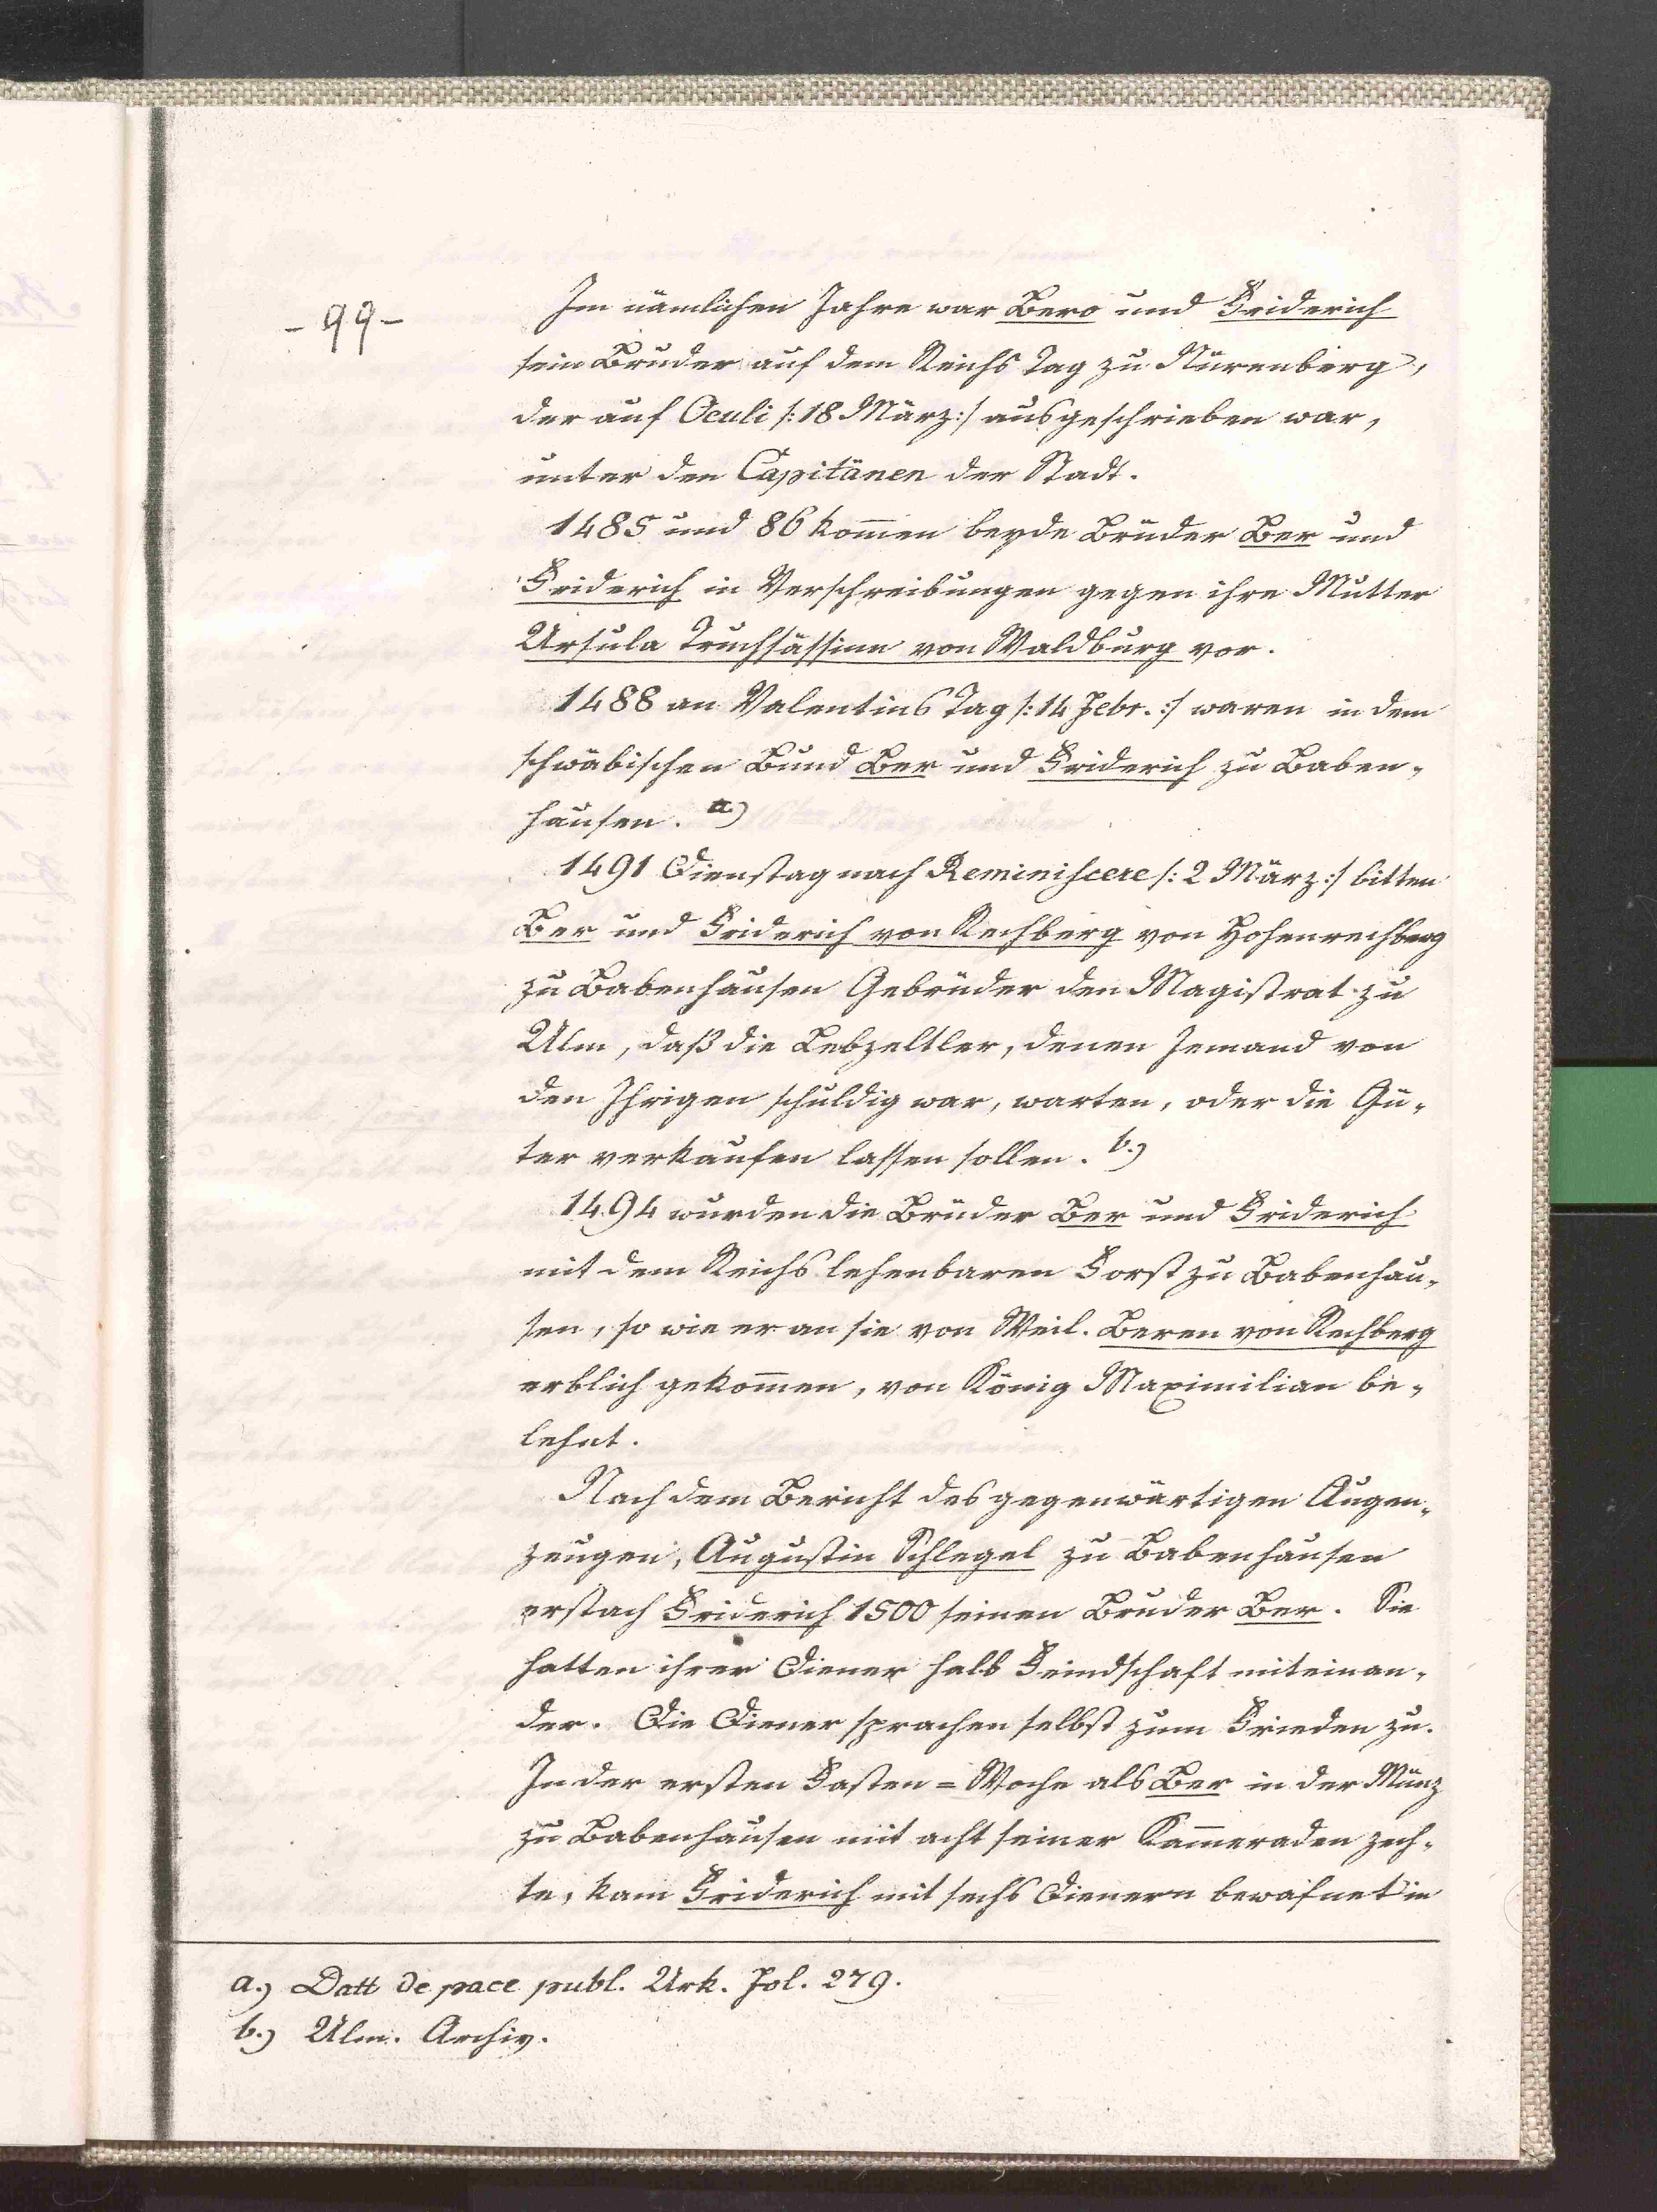 - 99 -
Im nämlichen Jahre war Bero und Friderich
sein Bruder auf dem Reichs Tag zu Nürenberg,
der auf Oculi /: 18 März :/ ausgeschrieben war,
unter den Capitänen der Stadt.
1485 und 86 kom̄en beyde Brüder Ber und
Friderich in Verschreibungen gegen ihre Mutter
Ursula Truchsässinn von Waldburg vor.
1488 an Valentins Tag /: 14 Febr. :/ waren in dem
schwäbischen Bund Ber und Friderich zu Baben-
hausen. a.)
1491 Dienstag nach Reminiscere /: 2 März :/ bitten
Ber und Friderich von Rechberg von Hohenrechberg
zu Babenhausen Gebrüder den Magistrat zu
Ulm, daß die Lebzeltler, denen Jemand von
den Ihrigen schuldig war, warten, oder die Gü-
ter verkaufen lassen sollen. b.)
1494 wurden die Brüder Ber und Friderich
mit dem Reichs lehenbaren Forst zu Babenhau-
sen, so wie er an sie von Weil. Beren von Rechberg
erblich gekom̄en, von König Maximilian be-
lehnt.
Nach dem Bericht des gegenwärtigen Augen-
zeugen, Augustin Schlegel zu Babenhausen
erstach Friderich 1500 seinen Bruder Ber. Sie
hatten ihrer Diener halb Feindschaft miteinan-
der. Die Diener sprachen selbst zum Frieden zu.
In der ersten Fasten = Woche als Ber in der Münz
zu Babenhausen mit acht seiner Kam̄eraden zech-
te, kam Friderich mit sechs Dienern bewafnet in
a.) Datt de pace publ. Urk. Fol. 279.
b.) Ulm. Archiv.